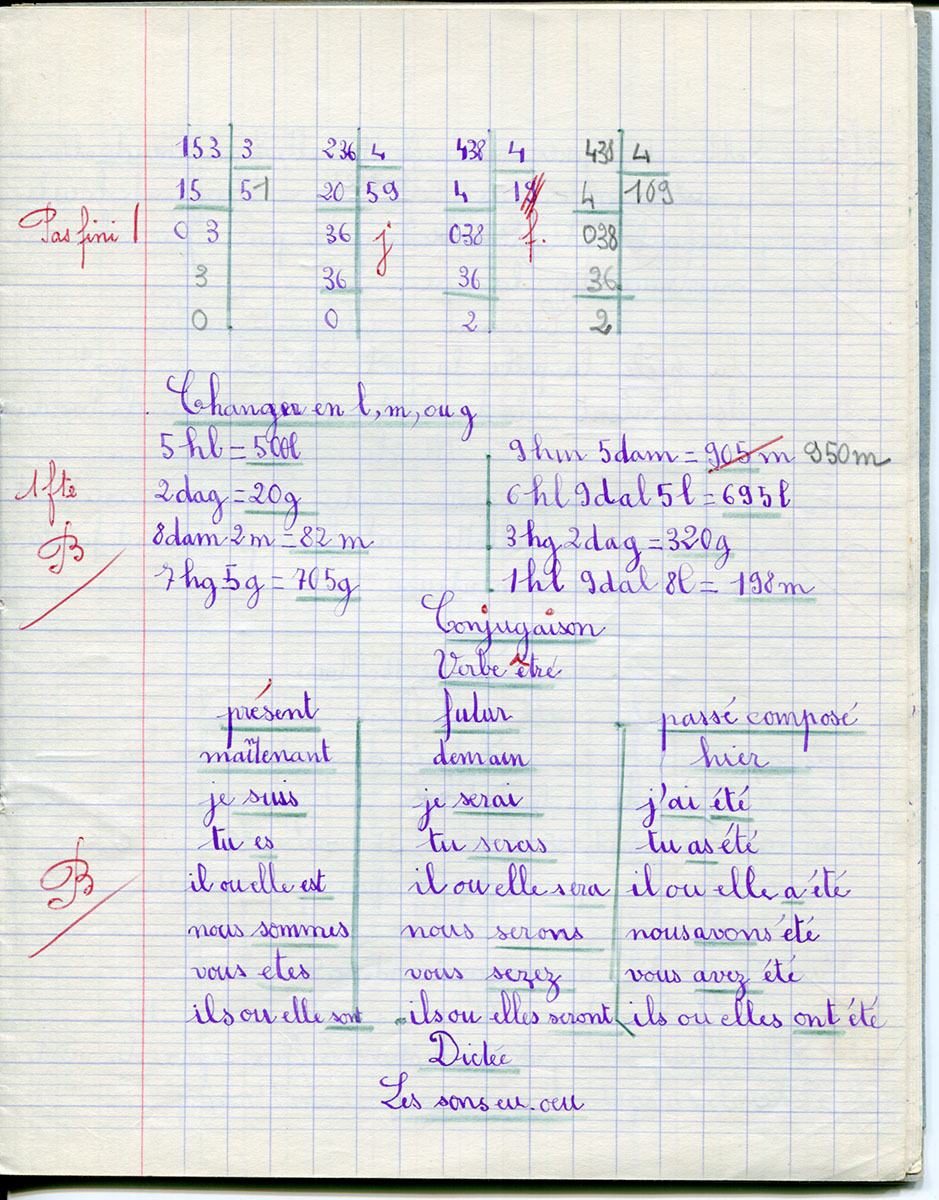 153 3 236 4 438 4 438 4
15 51 20 59 4 19 4 109
Pas fini ! 03 36 j 038 f. 038
3 36 36 36
0 0 2 2
Changer en l, m, ou g
5hl = 500l 9hm 5dam = 905 m 950m
1 fte 2dag = 20g 6hl 9dal 5l = 695l
B 8dam 2m = 82 m 3hg 2dag = 320g
7hg 5g = 705g 1hl 9dal 8l = 198m
Conjugaison
Verbe être
présent futur passé composé
maîtenant demain hier
je suis je serai j'ai été
tu es tu seras tu as été
B il ou elle est il ou elle sera il ou elle a été
nous sommes nous serons nous avons été
vous etes vous sezez vous avez été
ils ou elle sont ils ou elles seront ils ou elles ont été
Dictée
Les sons eu. oeu